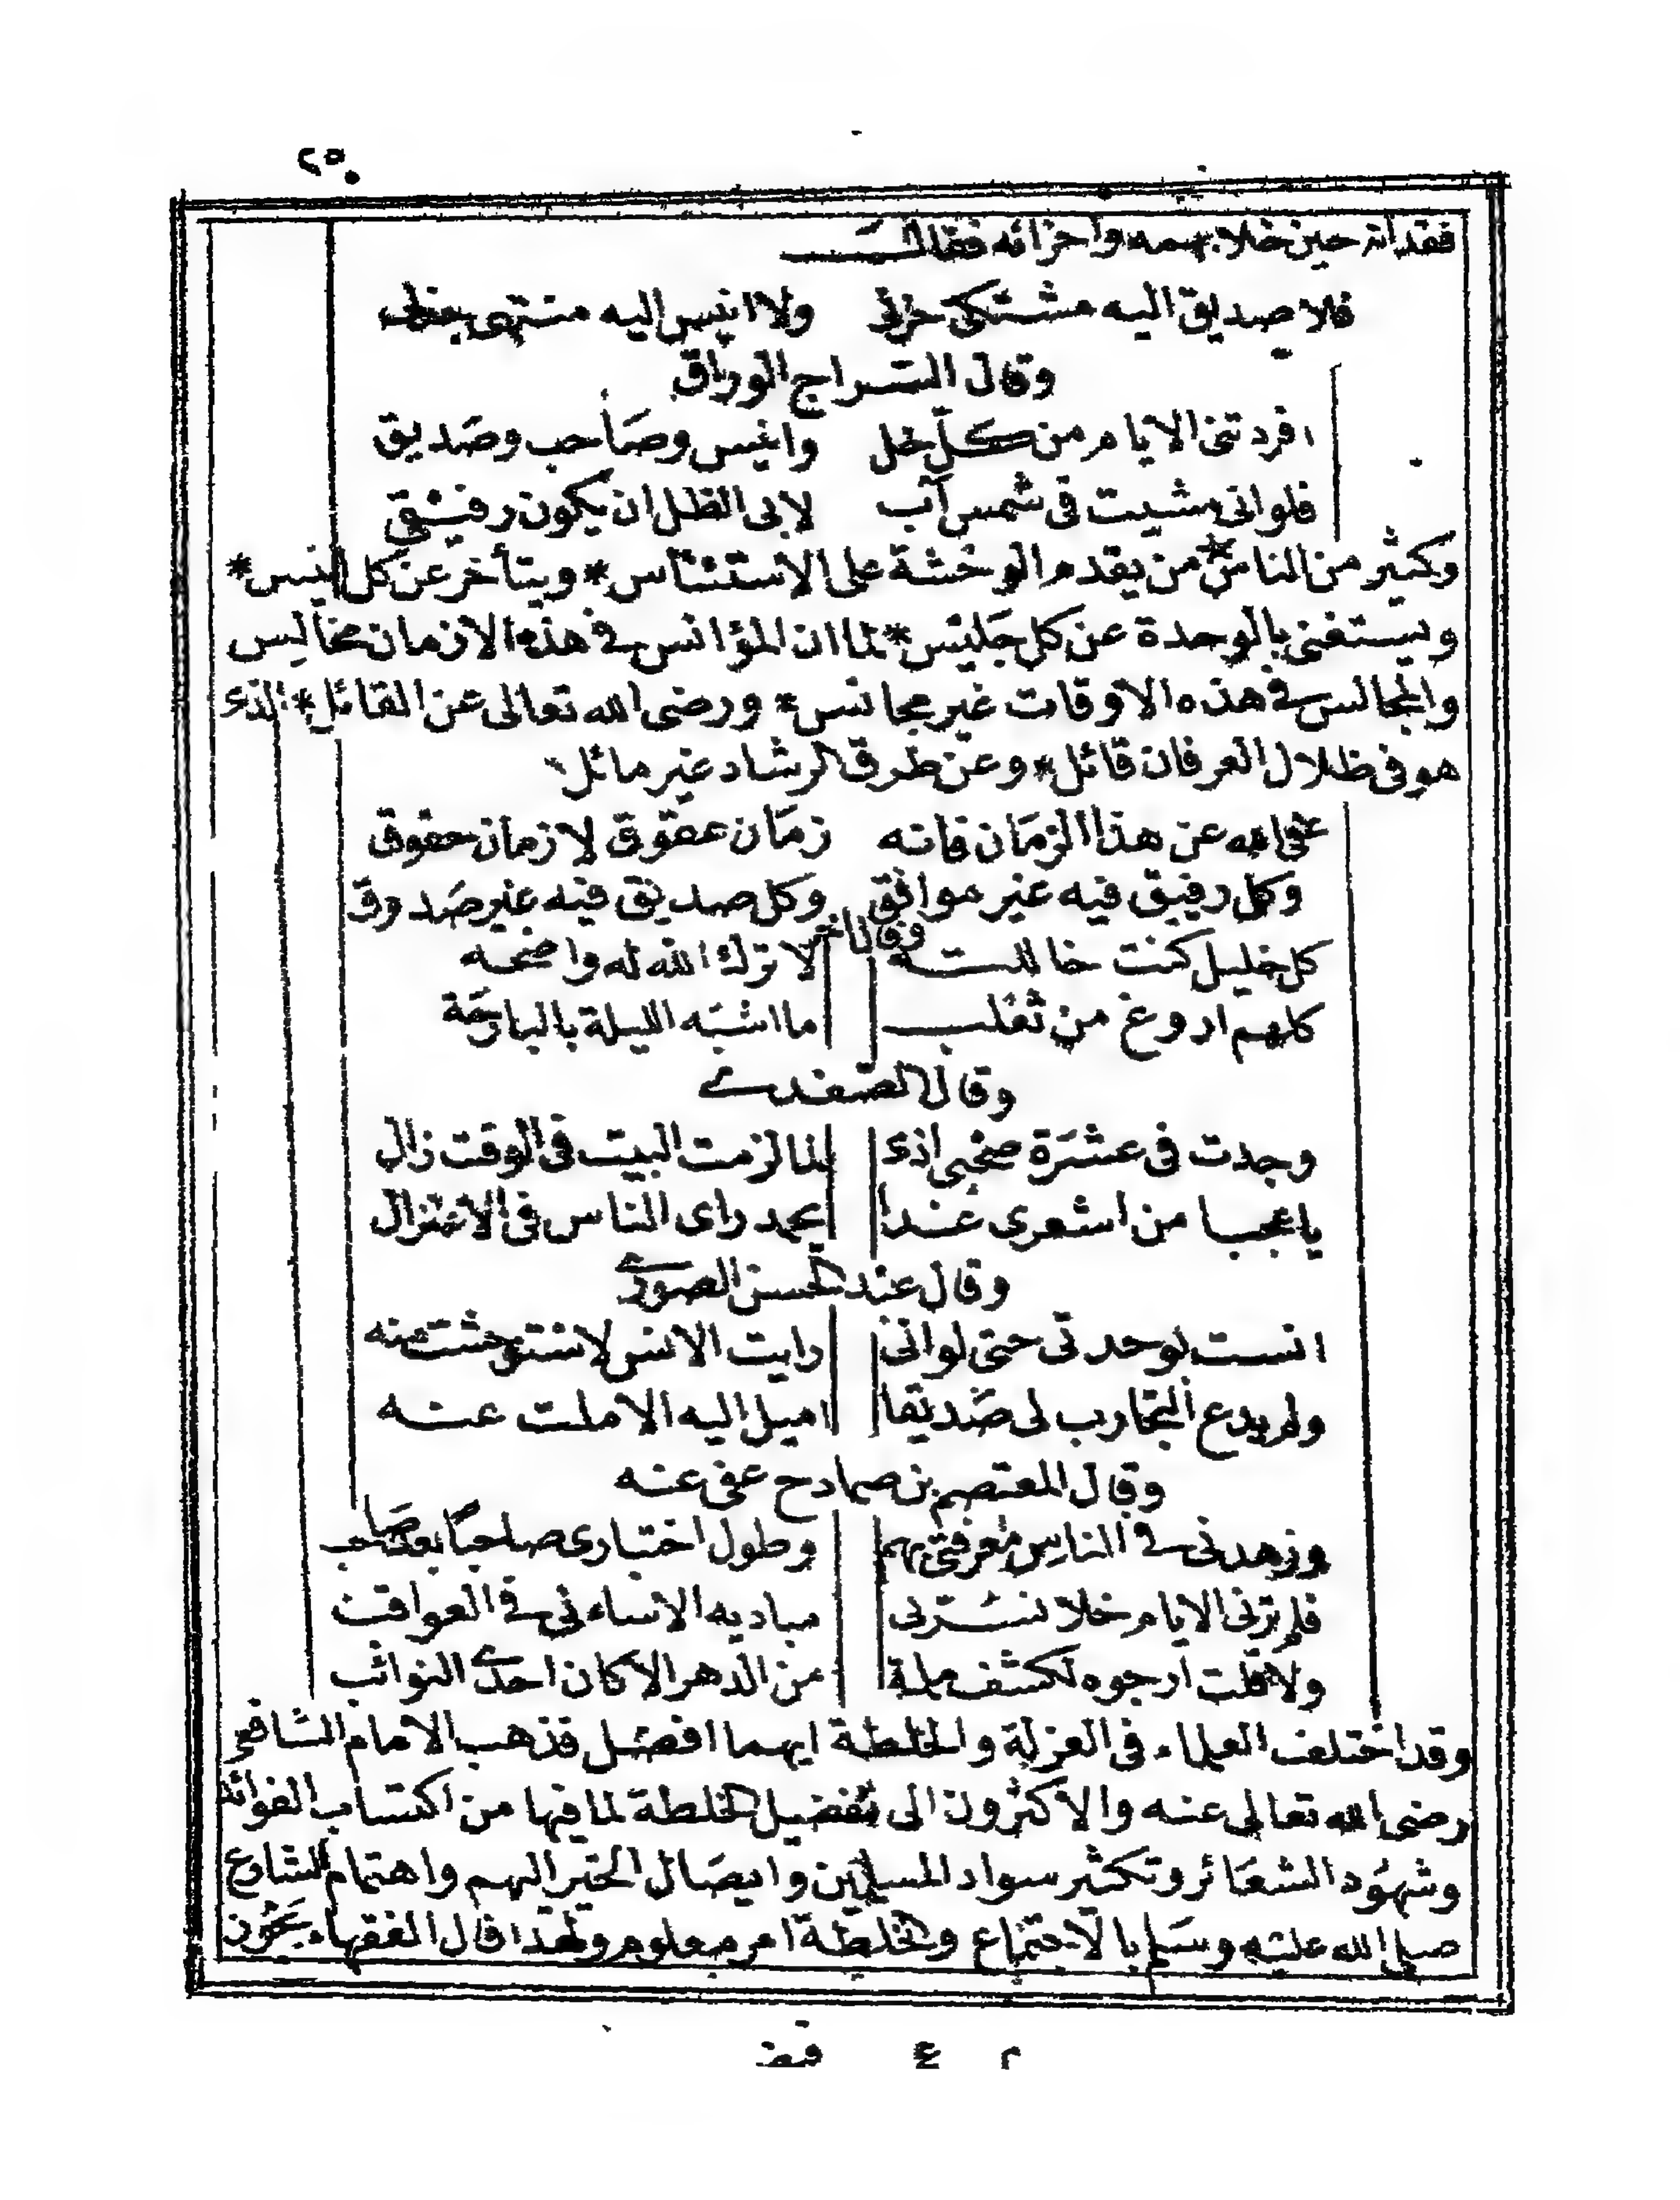 ٢٥
فقدانه حين خلا بهمه واحزانه فقال
فلا صديق اليه مشتكى حزنى ولا انيس اليه منتهى
وقال السراج الوراق
افردتنى الايام من كل خل وانيس وصاحب وصديق
فلوانى مشيت فى شمس آب لابى الظل ان يكون رفيقى
وكثير من الناس * من يقدم الوحشة على الاستئناس * ويتأخر عن كل انيس *
ويستغنى بالوحدة عن كل جليس * لما ان المؤانس فى هذه الازمان مخالس
والمجالس فى هذه الاوقات غير مجانس * ورضى الله تعالى عن القائل * الذى
هو فى ظلال العرفان قائل * وعن طرق الرشاد غير مائل
عفى الله عن هذا الزمان فانه زمان عقوق لا زمان حقوق
وكل رفيق فيه غير موافق وكل صديق فيه غير صدوق
وقال آخر
كل خليل كنت خاللته لا ترك الله له واضحه
كلهم اروغ من ثعلب ما اشبه الليلة بالبارحة
وقال الصفدى
وجدت فى عشرة صحبى اذى لما لزمت البيت فى الوقت زال
يا عجبا من اشعرى غدا يحمد راى الناس فى الاعتزال
وقال عبد المحسن الصورى
انست لوحدتى حتى لوانى رايت الانس لاستوحشت منه
ولم يدع التجارب لى صديقا اميل اليه الا ملت عنه
وقال المعتصم بن صمادح عفى عنه
وزهدنى فى الناس معرفتى بهم وطول اختبارى صاحبا بعد صاحب
فلم ترنى الايام خلا تسرنى مباديه الا ساءنى فى العواقب
ولا قلت ارجوه لكشف ملمة من الدهر الا كان احدى النوائب
وقد اختلف العلماء فى العزلة والخلطة ايهما افضل فذهب الامام الشافعى
رضى الله تعالى عنه والاكثرون الى تفضيل الخلطة لما فيها من اكتساب الفوائد
وشهود الشعائر وتكثير سواد المسلمين وايصال الخير اليهم واهتمام الشارع
صلى الله عليه وسلم بالاجتماع والخلطة امر معلوم ولهذا قال الفقهاء يجوز
٢ ٤